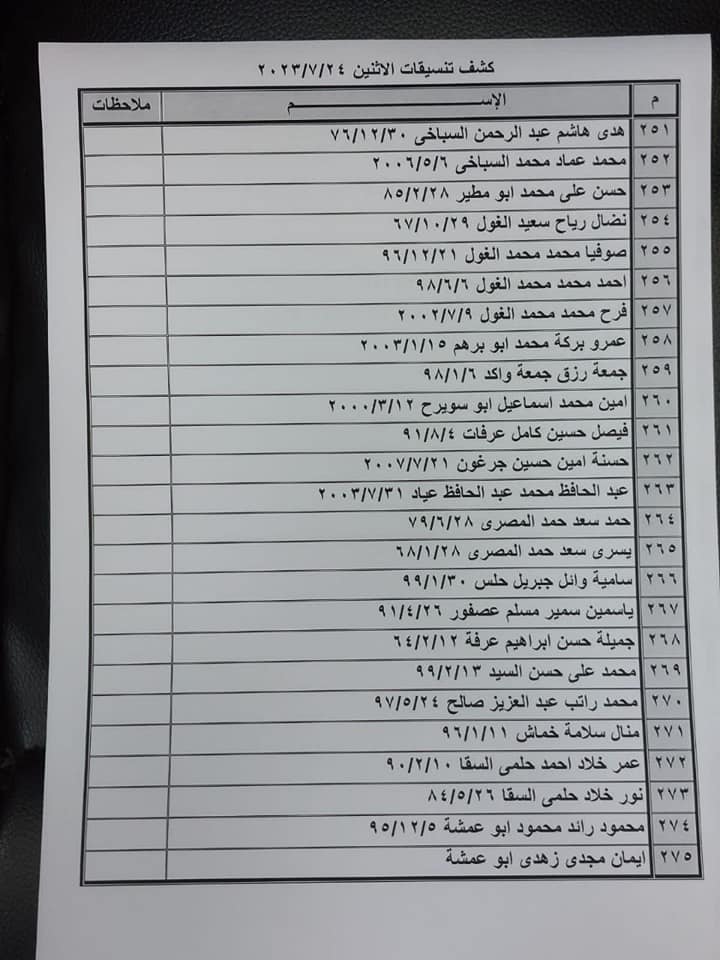 كشف تنسيقات الاثنين ٢٠٢٣/٧/٢٤
م الإســـــــــــــم ملاحظات
٢٥١ هدى هاشم عبد الرحمن السباخى ٧٦/١٢/٣٠
٢٥٢ محمد عماد محمد السباخى ٢٠٠٦/٥/٦
٢٥٣ حسن على محمد ابو مطير ٨٥/٢/٢٨
٢٥٤ نضال رياح سعيد الغول ٦٧/١٠/٢٩
٢٥٥ صوفيا محمد محمد الغول ٩٦/١٢/٢١
٢٥٦ احمد محمد محمد الغول ٩٨/٦/٦
٢٥٧ فرح محمد محمد الغول ٢٠٠٢/٧/٩
٢٥٨ عمرو بركة محمد ابو برهم ٢٠٠٣/١/١٥
٢٥٩ جمعة رزق جمعة واكد ٩٨/١/٦
٢٦٠ امين محمد اسماعيل ابو سويرح ٢٠٠٠/٣/١٢
٢٦١ فيصل حسين كامل عرفات ٩١/٨/٤
٢٦٢ حسنة امين حسين جرغون ٢٠٠٧/٧/٢١
٢٦٣ عبد الحافظ محمد عبد الحافظ عياد ٢٠٠٣/٧/٣١
٢٦٤ حمد سعد حمد المصرى ٧٩/٦/٢٨
٢٦٥ يسرى سعد حمد المصرى ٦٨/١/٢٨
٢٦٦ سامية وائل جبريل حلس ٩٩/١/٣٠
٢٦٧ ياسمين سمير مسلم عصفور ٩١/٤/٢٦
٢٦٨ جميلة حسن ابراهيم عرفة ٦٤/٢/١٢
٢٦٩ محمد على حسن السيد ٩٩/٢/١٣
٢٧٠ محمد راتب عبد العزيز صالح ٩٧/٥/٢٤
٢٧١ منال سلامة خماش ٩٦/١/١١
٢٧٢ عمر خلاد احمد حلمى السقا ٩٠/٢/١٠
٢٧٣ نور خلاد حلمى السقا ٨٤/٥/٢٦
٢٧٤ محمود رائد محمود ابو عمشة ٩٥/١٢/٥
٢٧٥ ايمان مجدى زهدى ابو عمشة